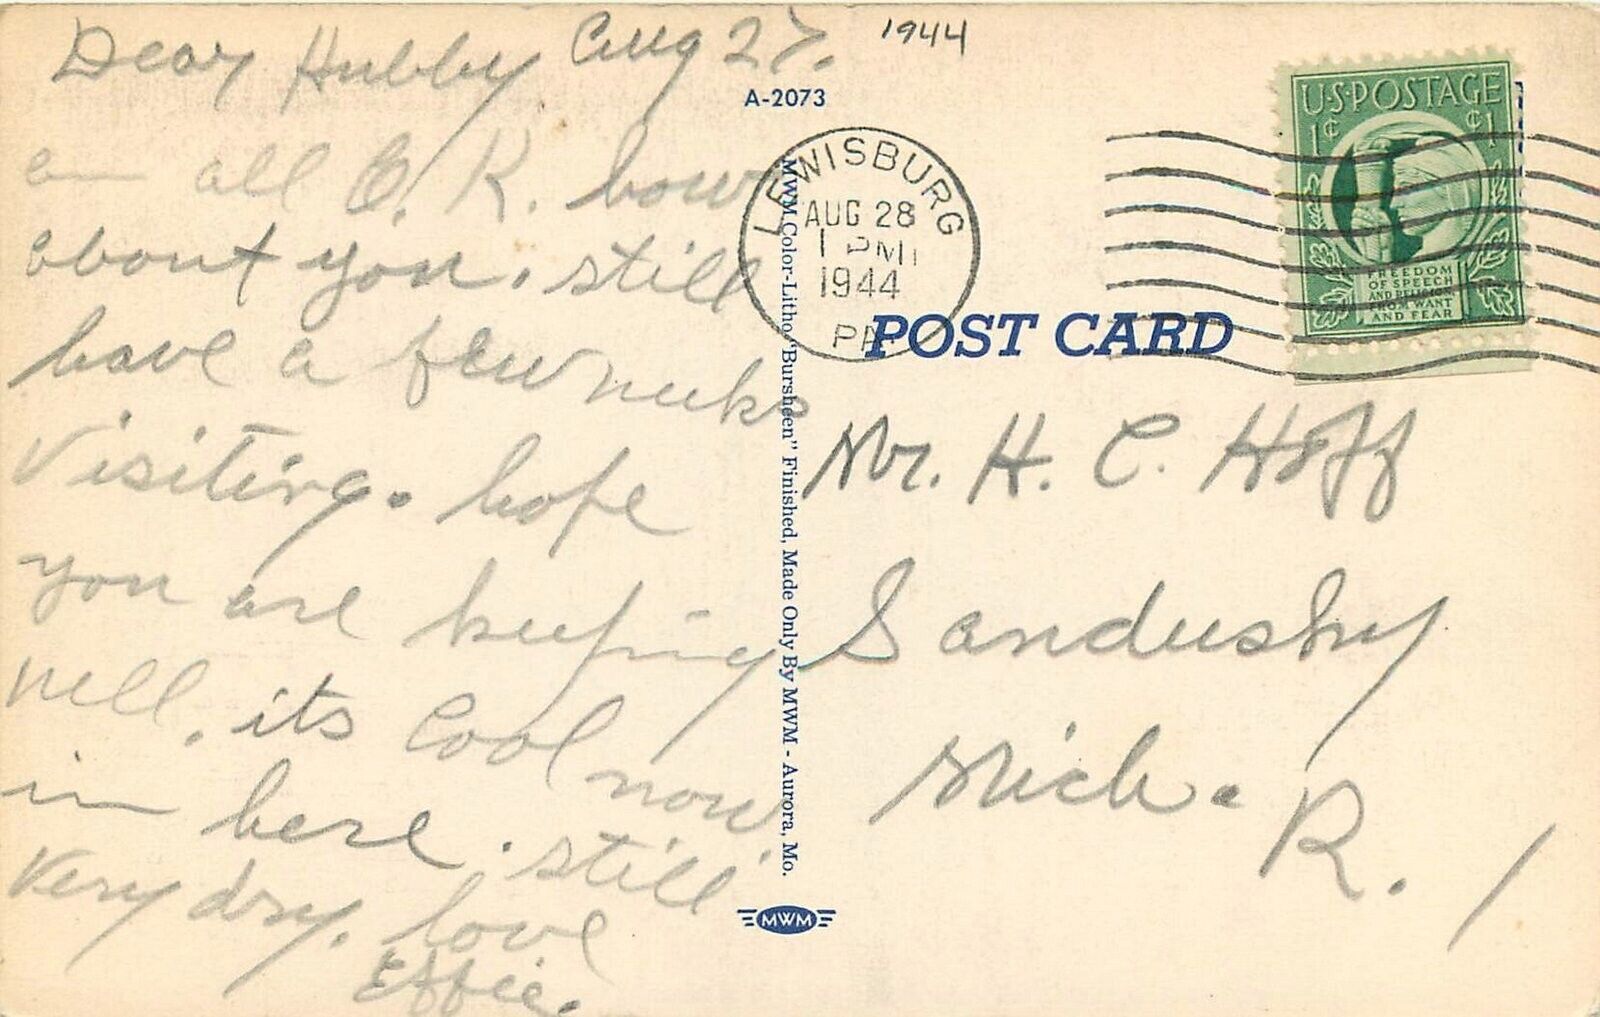 Dear Hubby Aug 27. 1944
am all O. K. how
about you. still
have a few weeks
visiting. hope
you are keeping
well. its cool now
in here. still
very dry. love
Effie.
A-2073
LEWISBURG
AUG 28
1 PM
1944
PA
U·S·POSTAGE
1¢ ¢1
FREEDOM
OF SPEECH
AND RELIGION
FROM WANT
AND FEAR
POST CARD
MWM Color-Litho "Bursheen" Finished, Made Only By MWM - Aurora, Mo.
MWM
Mr. H. C. Hoff
Sandusky
Mich.
R. 1